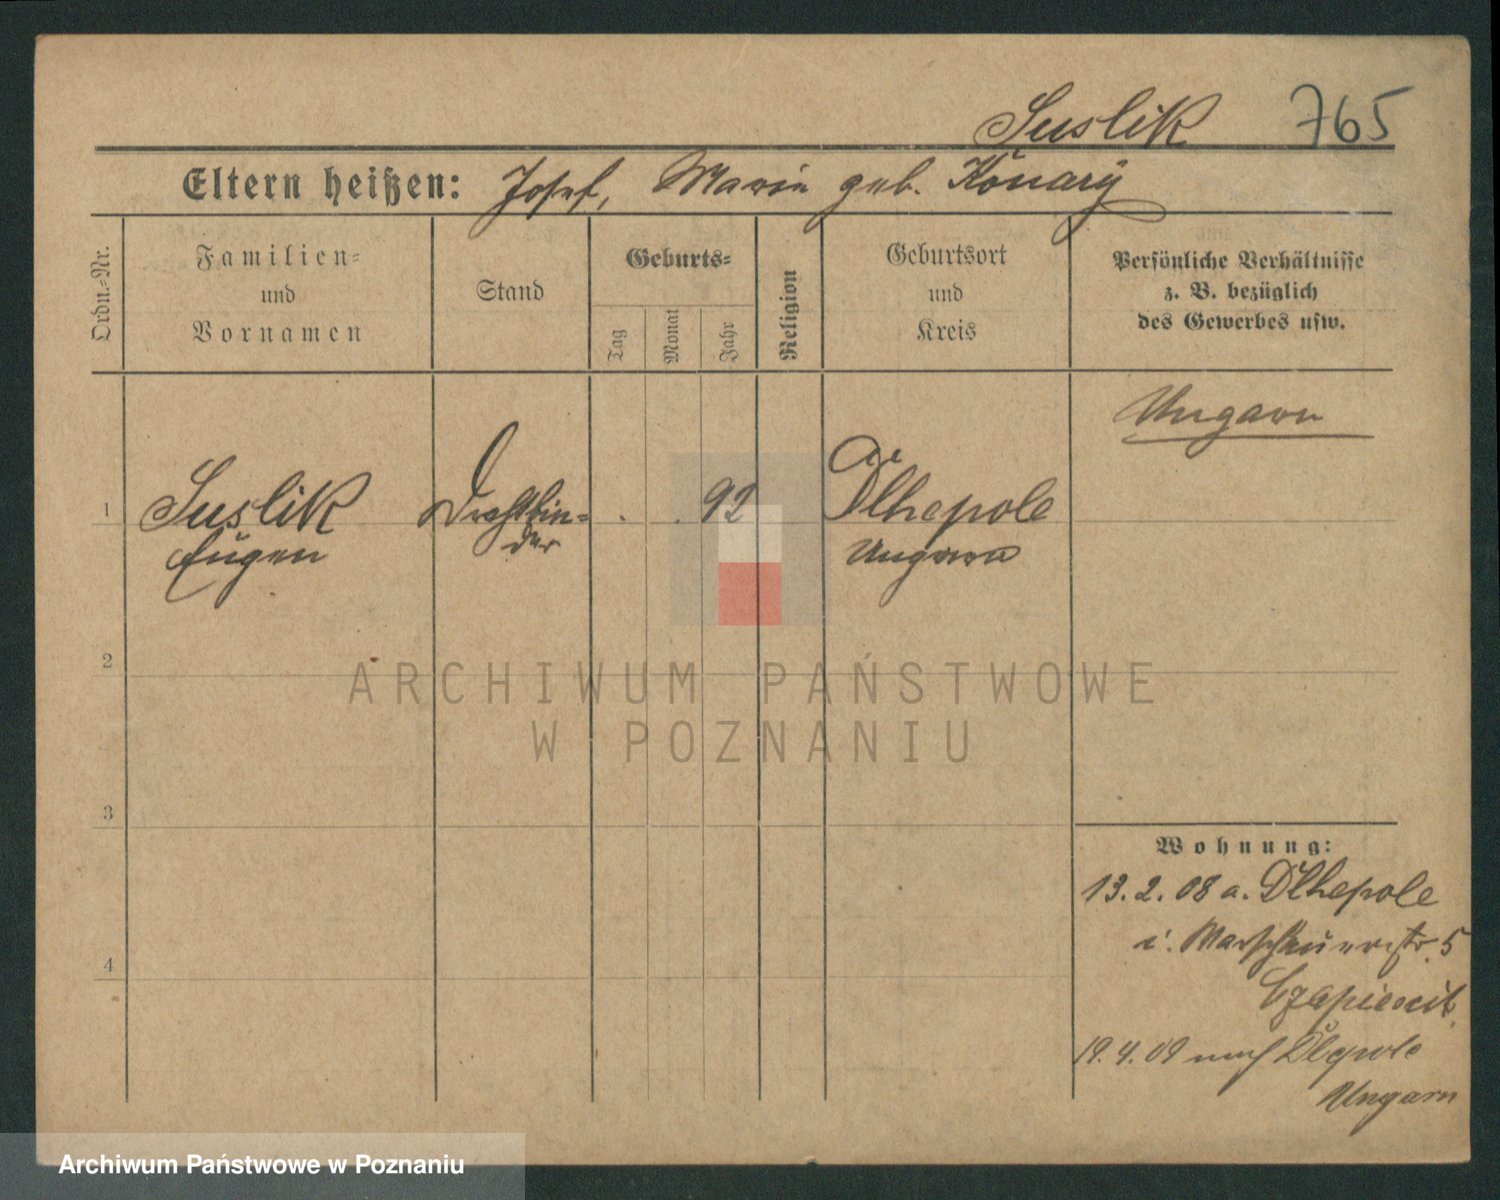 Suslik 765
Eltern heißen: Josef, Marie geb. Konarÿ
Ordn.-Nr.
Familien-
und
Vornamen
Stand
Geburts-
Tag
Monat
Jahr
Religion
Geburtsort
und
Kreis
Persönliche Verhältnisse
z. B. bezüglich
des Gewerbes usw.
Ungarn
1 Suslik Drahtbin- . . 92 Dlhepole
Eugen der Ungarn
2
ARCHIWUM PAŃSTWOWE
W POZNANIU
3
Wohnung:
13. 2. 08 a. Dlhepole
i. Warschauerstr. 5
4
19. 4. 09 nach Dlepole
Ungarn
Archiwum Państwowe w Poznaniu